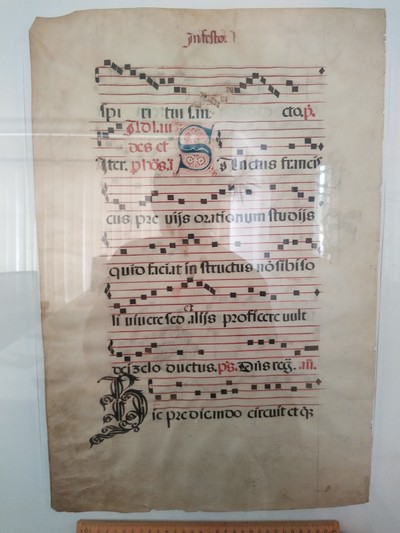 In festo.
spi ri tui san cto. p̄.
des et
Iter. phōs. i S Anctus francis
cus pre uijs orationum studijs
quid faciat in structus nō sibi so
li uiuere sed et alijs proficere uult
dei zelo ductus. ps. Dn̄s reg. añ.
Hic predicando circuit et q